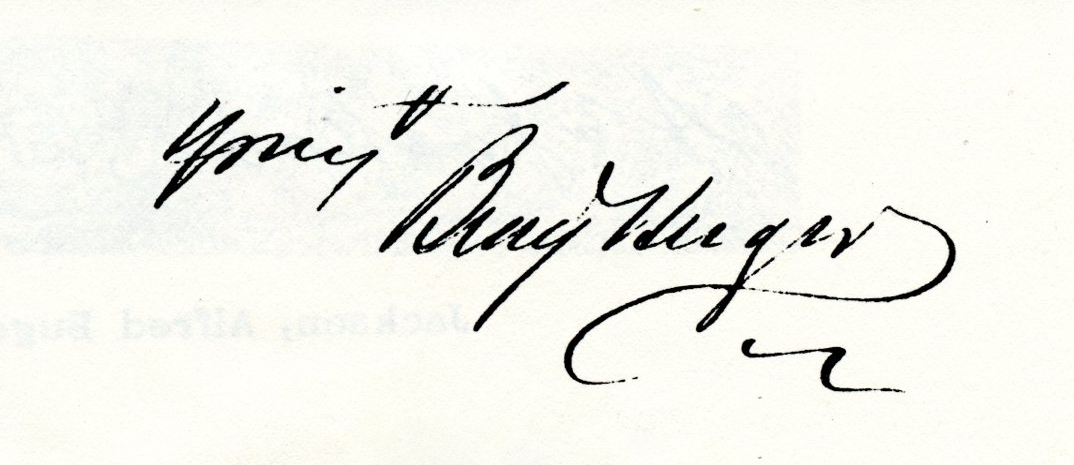 Yours
Benj Huger
Jackson, Alfred Eug